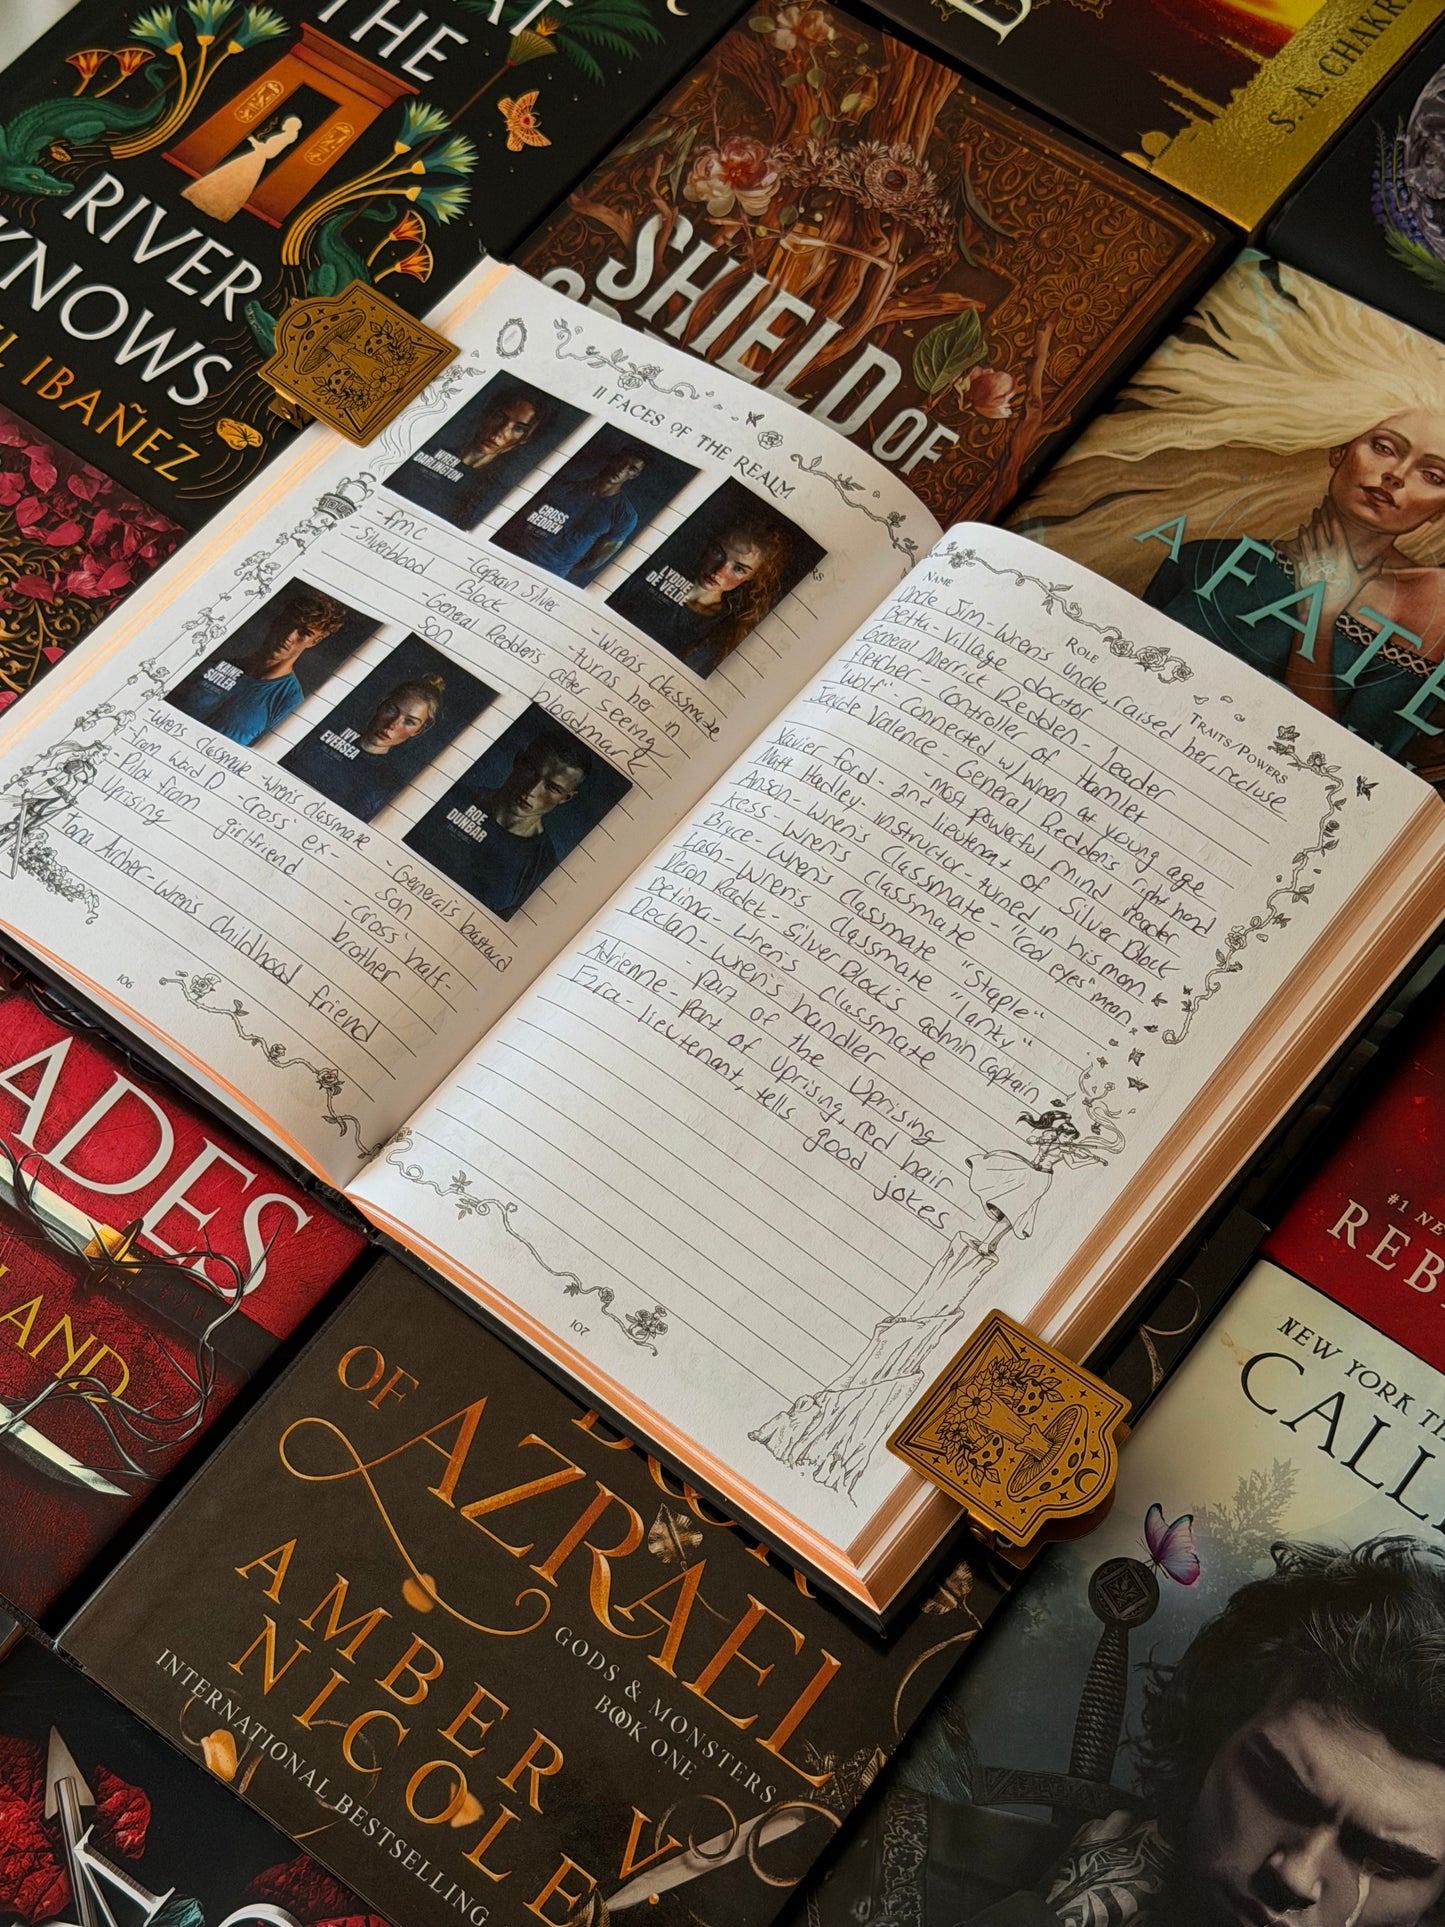 THE
RIVER
KNOWS
IBAÑEZ
SHIELD OF
S. A. CHAKR
A FATE
11 FACES OF THE REALM
WREN
DARLINGTON
CROSS
REDDEN
LYDDIE
DE VELDE
-fmc
-Silverblood
-Captain Silver
Block
-General Redden's
son
-Wren's classmate
-turns her in
after seeing
bloodmark
KAINE
SUTLER
IVY
EVERSEA
ROE
DUNBAR
-Wren's classmate
-from Ward D
-Pilot from
Uprising
-Wren's classmate
-Cross' ex-
girlfriend
-General's bastard
son
-Cross' half-
brother
Tana Archer - Wren's childhood friend
106
NAME
ROLE
TRAITS/POWERS
Uncle Jim - Wren's uncle, raised her, recluse
Betta - Village doctor
General Merrick Redden - leader
Fletcher - Controller of Hamlet
"Wolf" - Connected w/ Wren at young age
Jayde Valence - General Redden's right hand
- most powerful mind reader
Xavier Ford - 2nd lieutenant of Silver Block
Matt Hadley - instructor - turned in his mom
Anson - Wren's Classmate - "Cool eyes" mean
Kess - Wren's Classmate "Staple"
Bryce - Wren's Classmate "Lanky"
Lash - Wren's Classmate
Radek - Silver Block's admin Captain
- Wren's Classmate
Declan - Wren's handler
- Part of the Uprising
Adrienne - Part of Uprising, red hair
Ezra - lieutenant, tells good jokes
107
ADES
LAND
OF AZRAEL
GODS & MONSTERS
BOOK ONE
AMBER
V.
NICOLE
INTERNATIONAL BESTSELLING
#1 NE
REB
NEW YORK TI
CALL